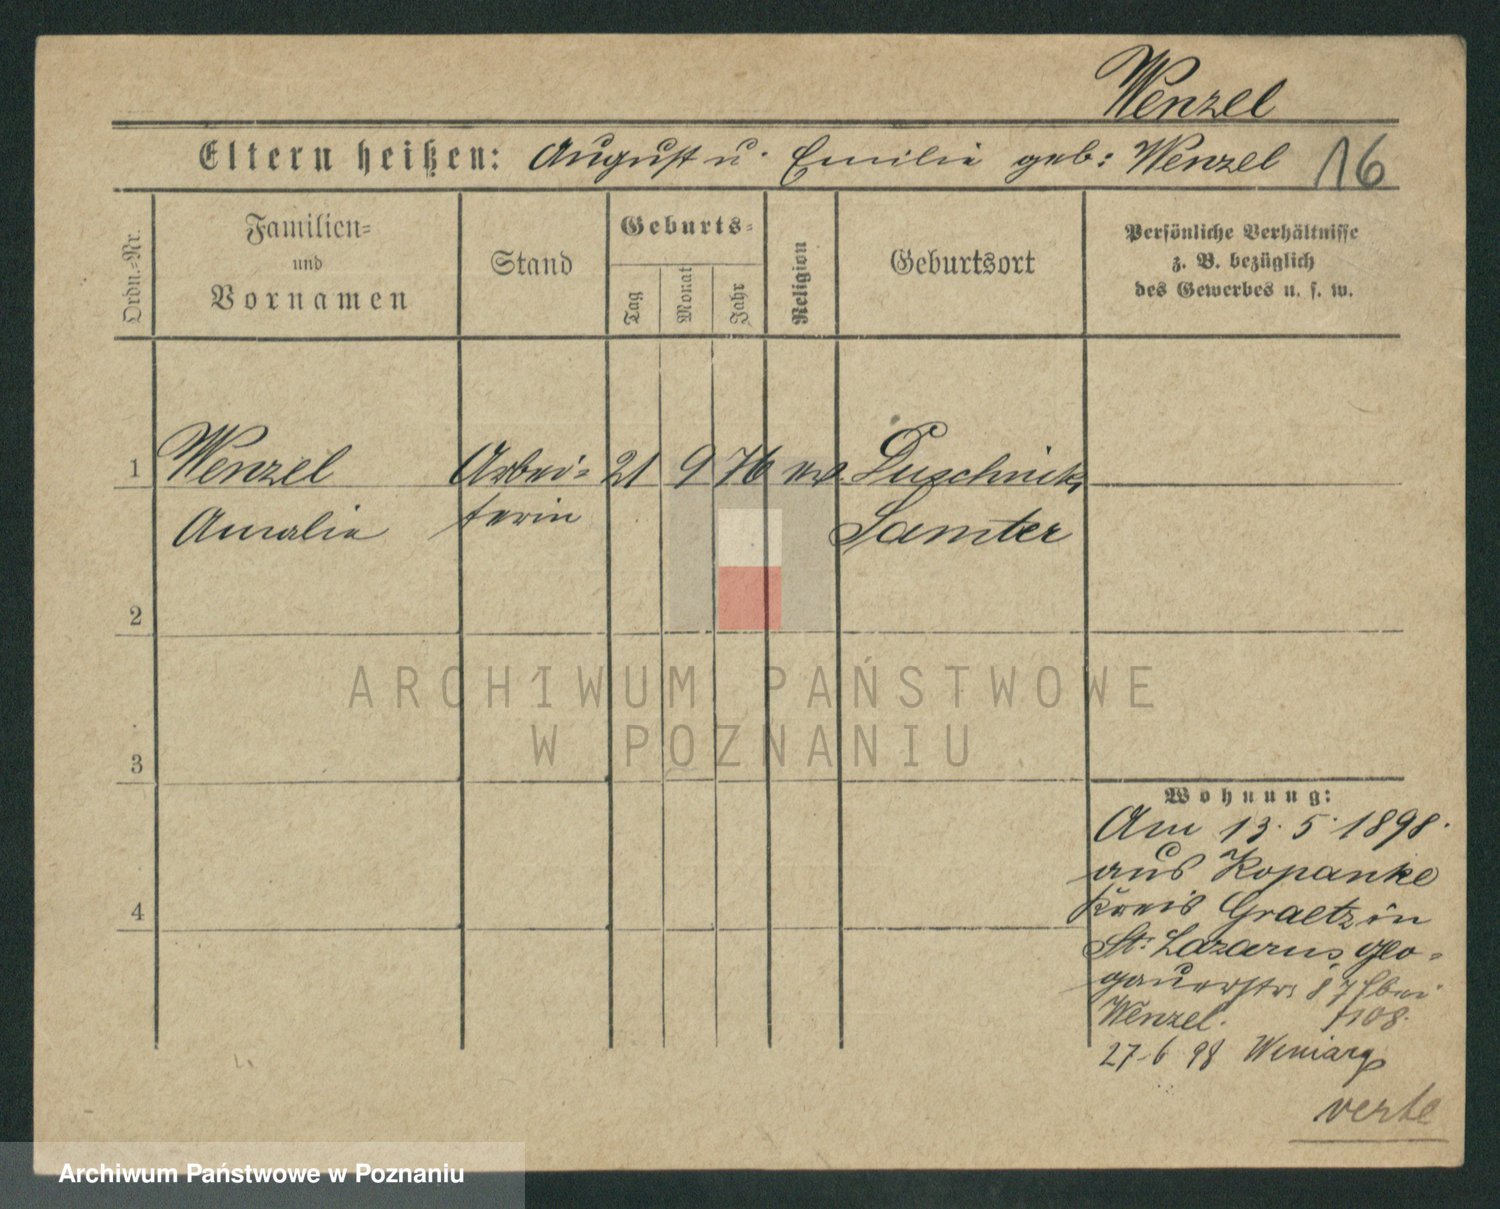 Wenzel
Eltern heißen: August u. Emilie geb: Wenzel 16
Ordn.-Nr.
Familien-
und
Vornamen
Stand
Geburts-
Tag
Monat
Jahr
Religion
Geburtsort
Persönliche Verhältnisse
z. B. bezüglich
des Gewerbes u. s. w.
1 Wenzel Arbei- 21 9 76 ev. Duschnik,
Amalie terin Samter
2
ARCHIWUM PAŃSTWOWE
W POZNANIU
3
4
Wohnung:
Am 13. 5. 1898.
aus Kopanke
Kreis Graetz in
St. Lazarus, Glo-
gauerstr. 87 bei
Wenzel. 1108.
27.6 98
verte
Archiwum Państwowe w Poznaniu